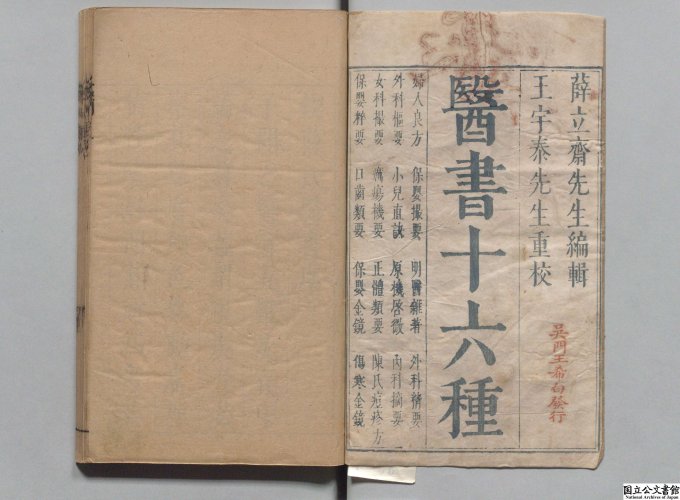 薛立齋先生編輯
王宇泰先生重校
吳門王希白發行
醫書十六種
婦人良方 保嬰撮要 明醫雜著 外科精要
外科樞要 小兒直訣 原機啓微 內科摘要
女科撮要 癘瘍機要 正體類要 陳氏痘疹方
保嬰粹要 口齒類要 保嬰金鏡 傷寒金鏡
国立公文書館
National Archives of Japan